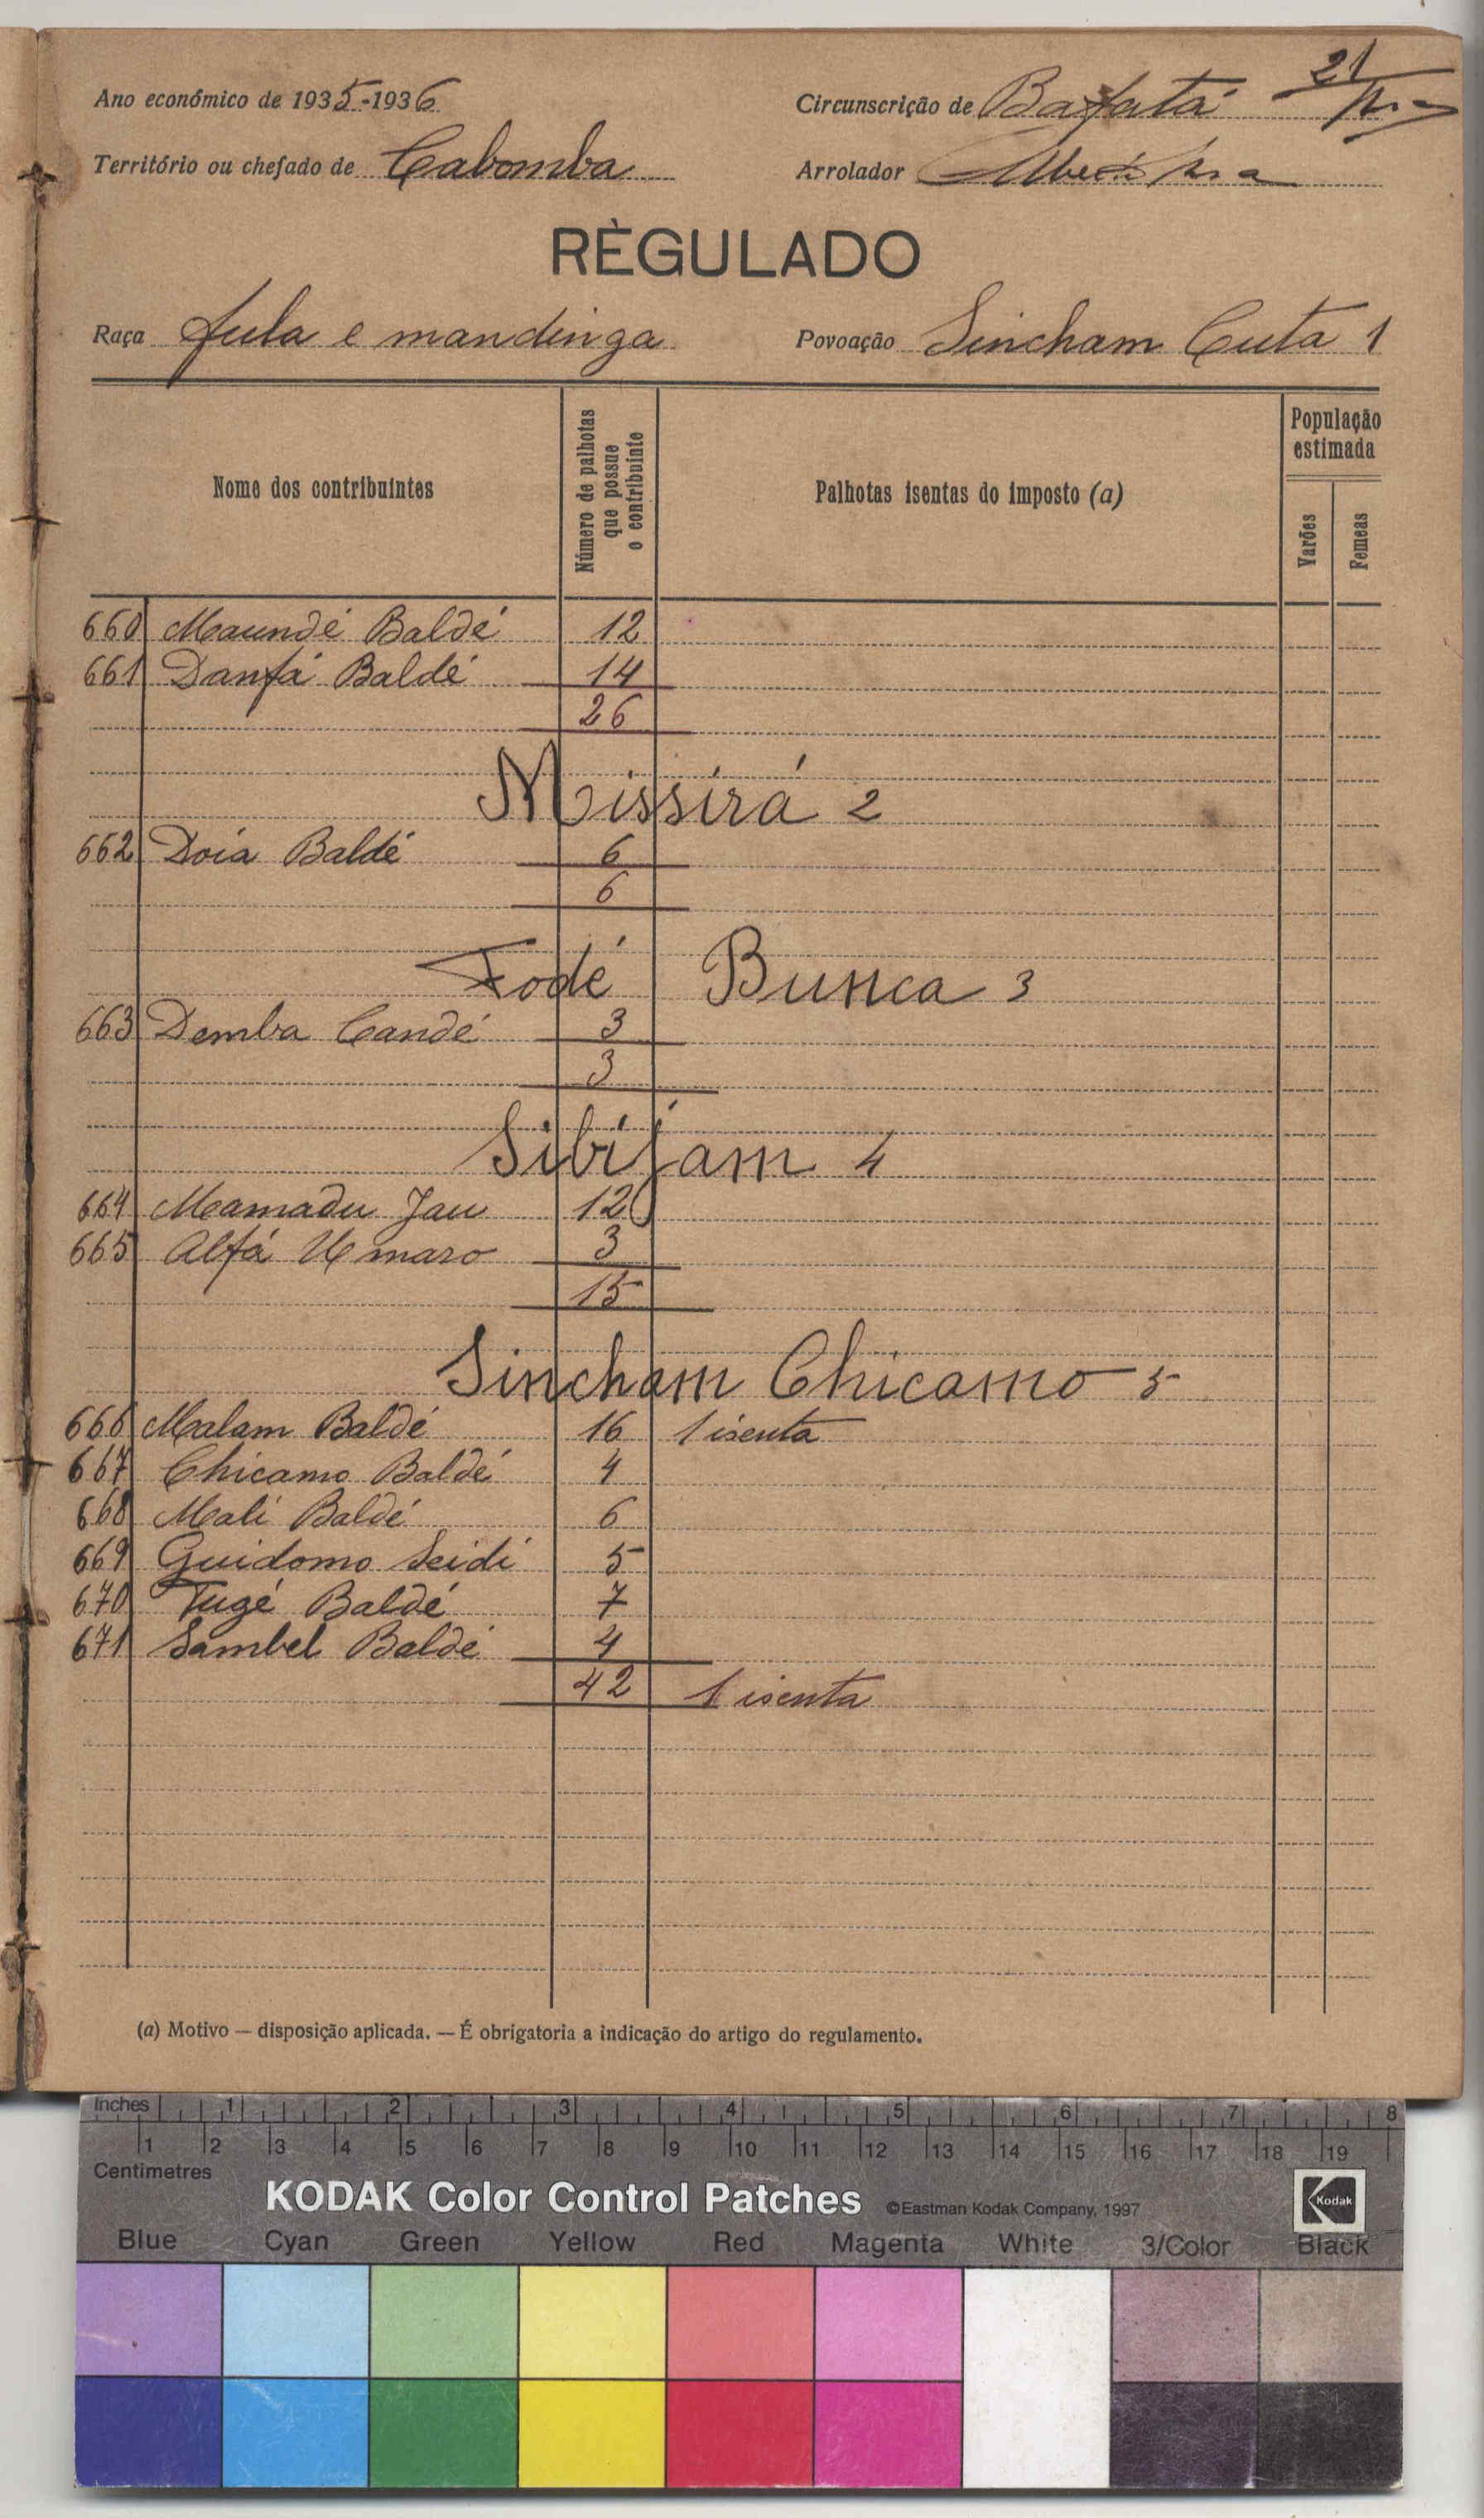 Ano económico de 1935-1936
Circunscrição de Bafatá 21
Território ou chefado de Cabomba
Arrolador
RÈGULADO
Raça fula e mandinga
Povoação Sincham Cuta 1
Nome dos contribuintes
Número de palhotas que possue o contribuinte
Palhotas isentas do imposto (a)
População estimada
Varões
Femeas
660 Maundé Baldé 12
661 Danfá Baldé 14
26
Missirá 2
662 Doia Baldé 6
6
Fodé Bunca 3
663 Demba Candé 3
3
Sibijam 4
664 Mamadu Jau 12
665 Alfá Umaro 3
15
Sincham Chicamo 5
666 Malam Baldé 16 1 isenta
667 Chicamo Baldé 4
668 Mali Baldé 6
669 Guidomo Seidi 5
670 Tugé Baldé 7
671 Sambel Baldé 4
42 1 isenta
(a) Motivo — disposição aplicada. — É obrigatoria a indicação do artigo do regulamento.
Inches 1 2 3 4 5 6 7 8
1 2 3 4 5 6 7 8 9 10 11 12 13 14 15 16 17 18 19
Centimetres
KODAK Color Control Patches ©Eastman Kodak Company, 1997 Kodak
Blue Cyan Green Yellow Red Magenta White 3/Color Black